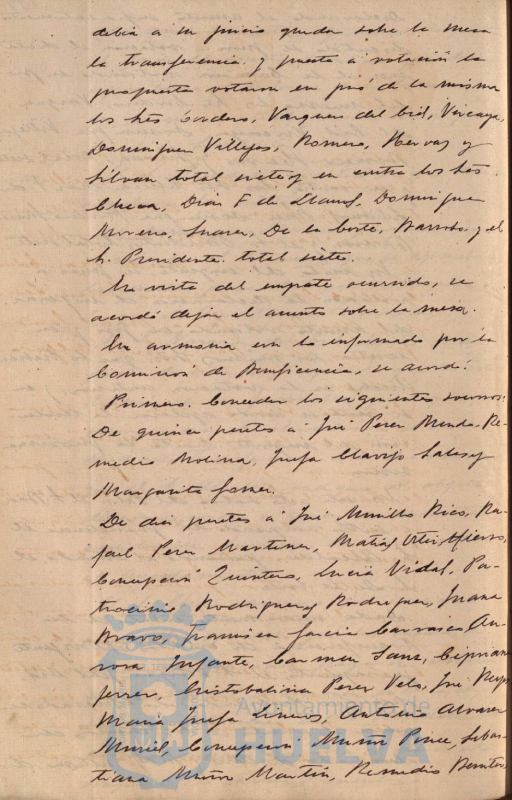 debia á su juicio quedar sobre la mesa
la transferencia y puesta á votación la
propuesta votaron en pró de la misma
los Sres Cordero, Vazquez del Cid, Vizcaya,
Dominguez Villegas, Romero, Hervas y
Silvan total siete y en contra los Sres.
Checa, Diaz F de Llanos, Dominguez
Moreno, Suarez, De la Corte, Barroso y el
Sr. Presidente total siete.
En vista del empate ocurrido, se
acordó dejar el asunto sobre la mesa.
En armonia con lo informado por la
Comisión de Beneficencia, se acordó:
Primero. Conceder los siguientes socorros:
De quince pesetas á José Perez Mendo, Re-
medio Molina, Josefa Clavijo Sales y
Margarita Gomez.
De diez pesetas á José Murillo Rico, Ra-
fael Perez Martinez, Matias Ortiz Hierro,
Concepción Quintero, Lucia Vidal, Pa-
trocinio Rodriguez Rodriguez, Juana
Bravo, Francisca Garcia Carrasco, Au-
rora Infante, Carmen Sanz, Cipriana
Ferrer, Cristobalina Perez Velo, José
Maria Josefa Limos, Antonio Alvarez
Muriel, Concepcion Muñoz Ponce, Sebas-
tiana Muñoz Martín, Remedio
Ayuntamiento de
HUELVA